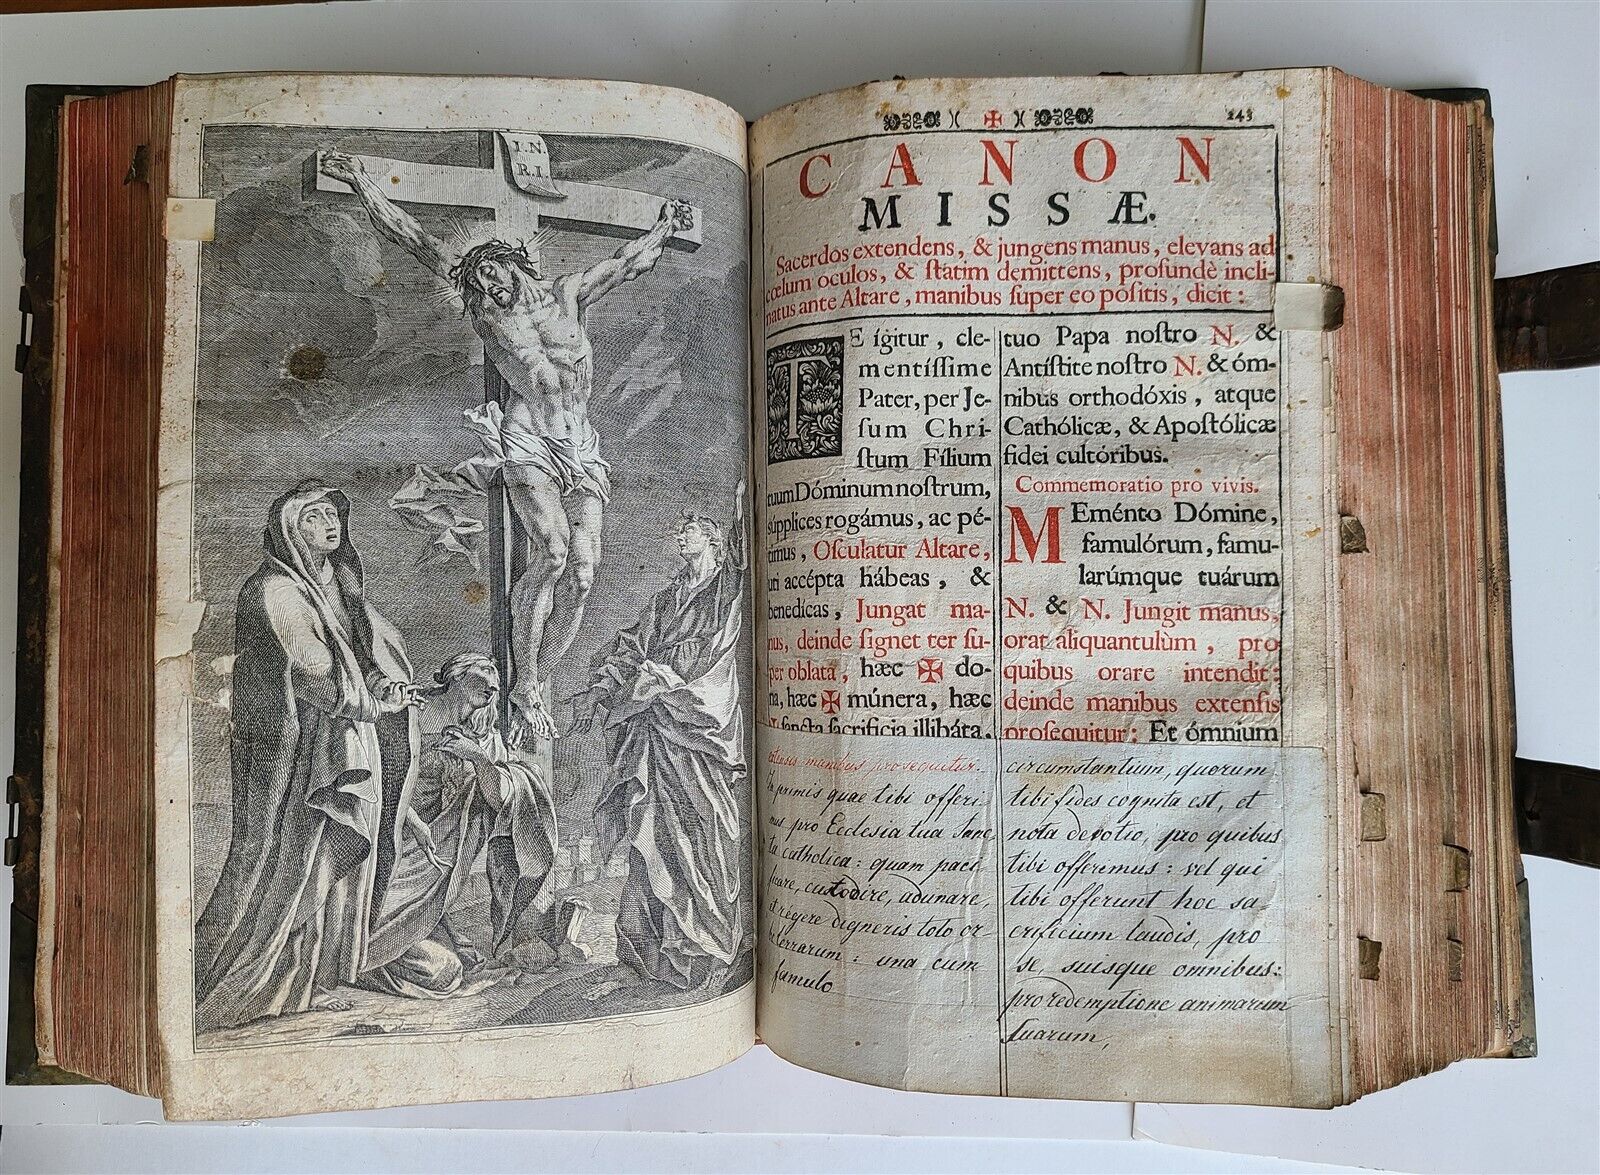 I.N.
R.I.
243
CANON
MISSÆ.
Sacerdos extendens, & jungens manus, elevans ad
cœlum oculos, & ſtatim demittens, profundè incli-
natus ante Altare, manibus ſuper eo poſitis, dicit:
TE ígitur, cle-
mentíſſime
Pater, per Je-
ſum Chri-
ſtum Fílium
tuum Dóminum noſtrum,
súpplices rogámus, ac pé-
timus, Oſculatur Altare,
uti accépta hábeas, &
benedícas, Jungat ma-
nus, deinde ſignet ter ſu-
per oblata, hæc ✠ do-
na, hæc ✠ múnera, hæc
✠ ſancta ſacrificia illibáta,
extensis manibus prosequitur.
In primis quae tibi offeri-
mus pro Ecclesia tua Sanc
ta catholica: quam paci
ficare, custodire, adunare,
et régere digneris toto or-
be terrarum: una cum
famulo
tuo Papa noſtro N. &
Antíſtite noſtro N. & óm-
nibus orthodóxis, atque
Cathólicæ, & Apoſtólicæ
fidei cultóribus.
Commemoratio pro vivis.
MEménto Dómine,
famulórum, famu-
larúmque tuárum
N. & N. Jungit manus,
orat aliquantulùm, pro
quibus orare intendit:
deinde manibus extenſis
proſequitur: Et ómnium
circumstantium, quorum
tibi fides cognita est, et
nota devotio, pro quibus
tibi offerimus: vel qui
tibi offerunt hoc sa-
crificium laudis, pro
se, suisque omnibus:
pro redemptione animarum
suarum,